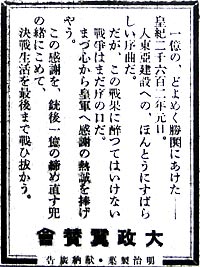 一億の、どよめく勝鬨にあけた――
皇紀二千六百二年元日。
大東亞建設への、ほんとうにすばら
しい序曲だ。
だが、この戰果に酔つてはいけない
戰爭はまだ序の口だ。
まづ心から皇軍へ感謝の熱誠を捧げ
やう。
この感謝を、銃後一億の締め直す兜
の緒にこめて、
決戰生活を最後まで戰ひ拔かう。
大政翼賛會
明治製菓・献納廣告